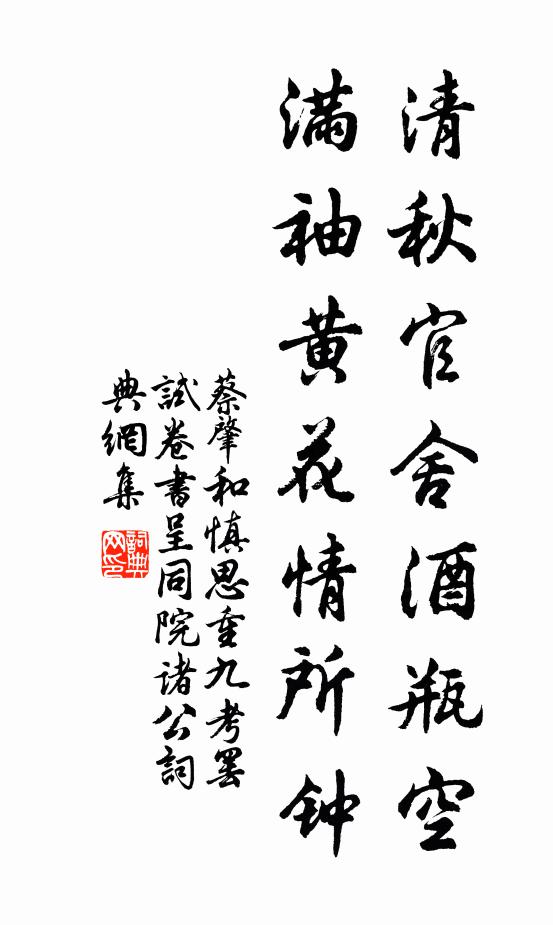 清秋官舍酒瓶空
满袖黄花情所钟
蔡肇和慎思重九考罢
試卷書呈同院诸公詞
典網集
詞典网印